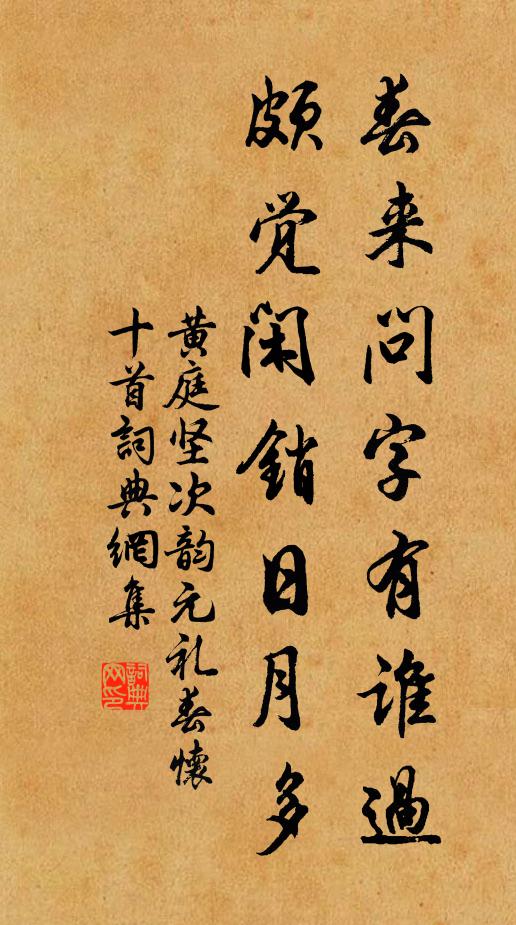 春来问字有谁過
頗觉閑銷日月多
黄庭坚次韵元礼春懷
十首詞典網集
詞典网印